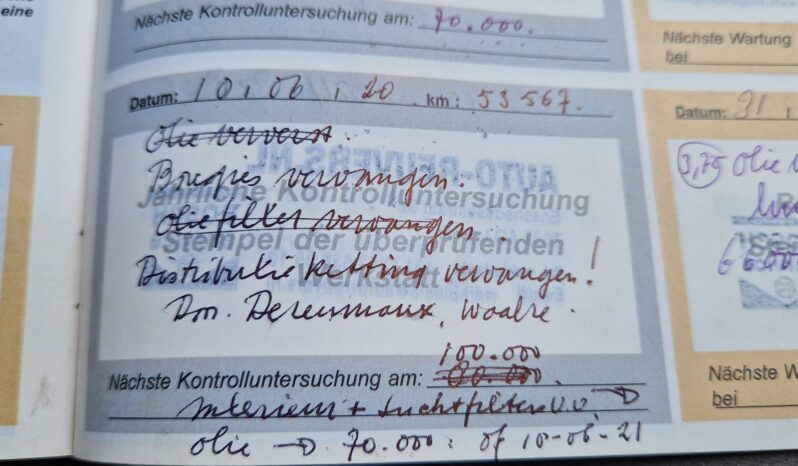 eine
Nächste Kontrolluntersuchung am: 70.000.
Nächste Wartung
bei
Datum: 10.06.20 km: 53567.
Olie ververst.
Bougies vervangen.
Jährliche Kontrolluntersuchung
Oliefilter vervangen.
Stempel der überprüfenden
Distributieketting vervangen!
Werkstatt
Waalre.
AUTO-REIJVERS.NL
100.000
Nächste Kontrolluntersuchung am: 80.000.
Interieur + Luchtfilter v.v. →
olie → 70.000 : of 10-06-21
Datum: 31
3,75 Olie
66.00
Nächste W
bei